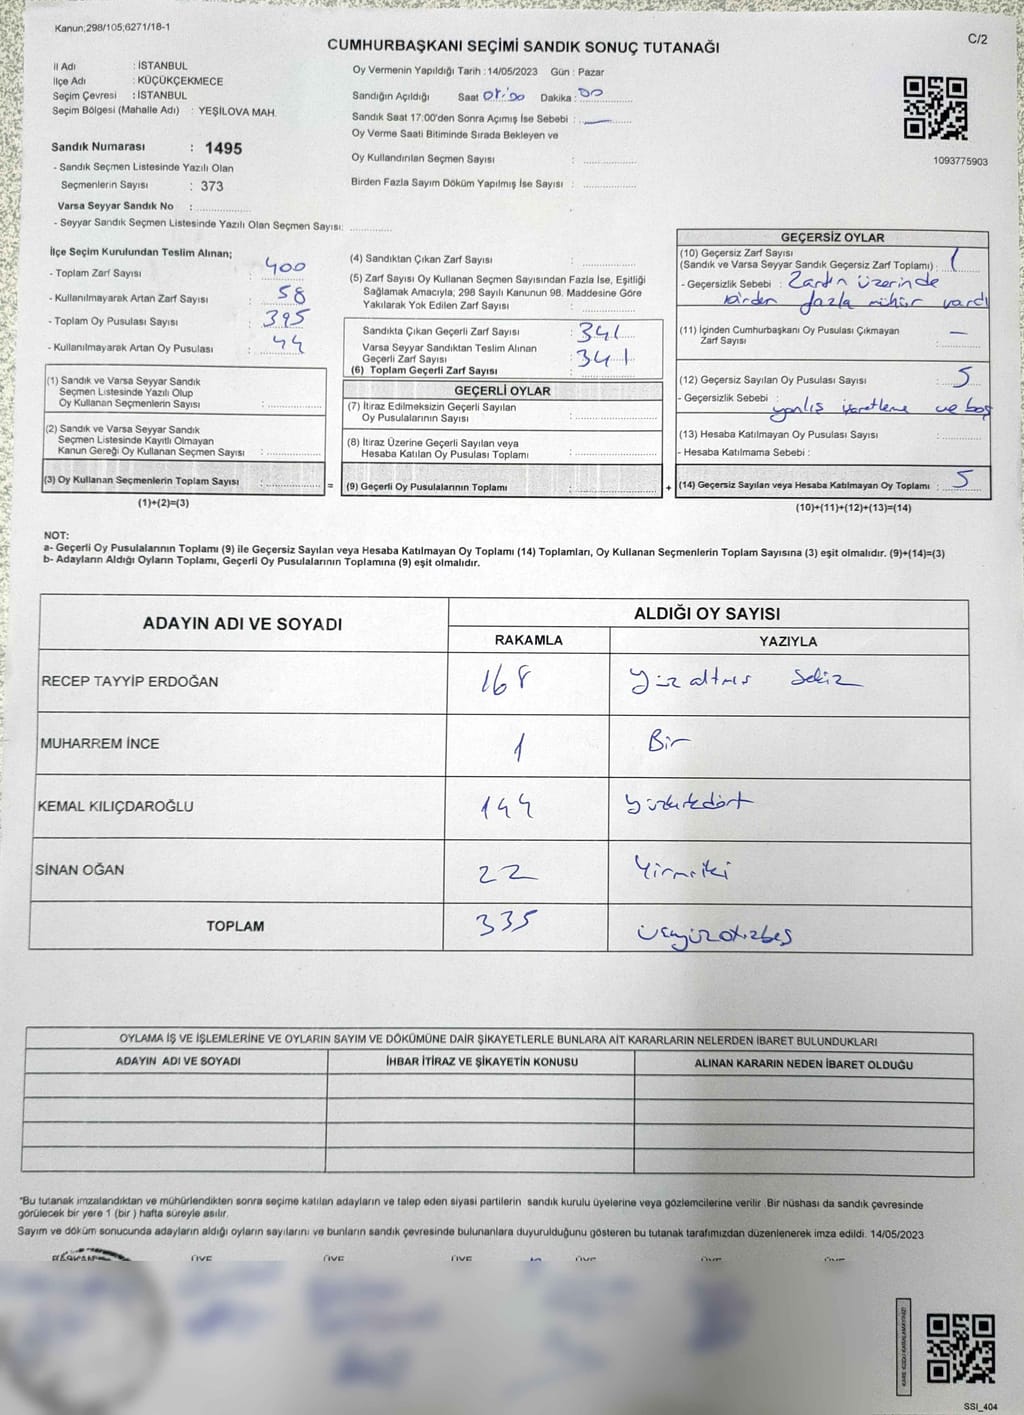 Kanun;298/105;6271/18-1
C/2
CUMHURBAŞKANI SEÇİMİ SANDIK SONUÇ TUTANAĞI
İl Adı : İSTANBUL
İlçe Adı : KÜÇÜKÇEKMECE
Seçim Çevresi : İSTANBUL
Seçim Bölgesi (Mahalle Adı) : YEŞİLOVA MAH.
Sandık Numarası : 1495
- Sandık Seçmen Listesinde Yazılı Olan
Seçmenlerin Sayısı : 373
Varsa Seyyar Sandık No :
- Seyyar Sandık Seçmen Listesinde Yazılı Olan Seçmen Sayısı:
Oy Vermenin Yapıldığı Tarih : 14/05/2023 Gün : Pazar
Sandığın Açıldığı Saat Dakika : 00
Sandık Saat 17:00'den Sonra Açımış İse Sebebi :
Oy Verme Saati Bitiminde Sırada Bekleyen ve
Oy Kullandırılan Seçmen Sayısı :
Birden Fazla Sayım Döküm Yapılmış İse Sayısı :
1093775903
İlçe Seçim Kurulundan Teslim Alınan;
- Toplam Zarf Sayısı : 400
- Kullanılmayarak Artan Zarf Sayısı : 58
- Toplam Oy Pusulası Sayısı : 395
- Kullanılmayarak Artan Oy Pusulası : 44
(1) Sandık ve Varsa Seyyar Sandık
Seçmen Listesinde Yazılı Olup
Oy Kullanan Seçmenlerin Sayısı :
(2) Sandık ve Varsa Seyyar Sandık
Seçmen Listesinde Kayıtlı Olmayan
Kanun Gereği Oy Kullanan Seçmen Sayısı :
(3) Oy Kullanan Seçmenlerin Toplam Sayısı :
(1)+(2)=(3)
(4) Sandıktan Çıkan Zarf Sayısı :
(5) Zarf Sayısı Oy Kullanan Seçmen Sayısından Fazla İse, Eşitliği
Sağlamak Amacıyla; 298 Sayılı Kanunun 98. Maddesine Göre
Yakılarak Yok Edilen Zarf Sayısı :
Sandıkta Çıkan Geçerli Zarf Sayısı : 341
Varsa Seyyar Sandıktan Teslim Alınan
Geçerli Zarf Sayısı :
(6) Toplam Geçerli Zarf Sayısı : 341
GEÇERLİ OYLAR
(7) İtiraz Edilmeksizin Geçerli Sayılan
Oy Pusulalarının Sayısı :
(8) İtiraz Üzerine Geçerli Sayılan veya
Hesaba Katılan Oy Pusulası Toplamı :
= (9) Geçerli Oy Pusulalarının Toplamı :
GEÇERSİZ OYLAR
(10) Geçersiz Zarf Sayısı
(Sandık ve Varsa Seyyar Sandık Geçersiz Zarf Toplamı) : 1
- Geçersizlik Sebebi : Zarfın üzerinde
birden fazla mühür vardı
(11) İçinden Cumhurbaşkanı Oy Pusulası Çıkmayan
Zarf Sayısı : —
(12) Geçersiz Sayılan Oy Pusulası Sayısı : 5
- Geçersizlik Sebebi : yanlış işaretleme ve boş
(13) Hesaba Katılmayan Oy Pusulası Sayısı :
- Hesaba Katılmama Sebebi :
+ (14) Geçersiz Sayılan veya Hesaba Katılmayan Oy Toplamı : 5
(10)+(11)+(12)+(13)=(14)
NOT:
a- Geçerli Oy Pusulalarının Toplamı (9) ile Geçersiz Sayılan veya Hesaba Katılmayan Oy Toplamı (14) Toplamları, Oy Kullanan Seçmenlerin Toplam Sayısına (3) eşit olmalıdır. (9)+(14)=(3)
b- Adayların Aldığı Oyların Toplamı, Geçerli Oy Pusulalarının Toplamına (9) eşit olmalıdır.
ADAYIN ADI VE SOYADI
ALDIĞI OY SAYISI
RAKAMLA YAZIYLA
RECEP TAYYİP ERDOĞAN 168 yüz altmış sekiz
MUHARREM İNCE 1 Bir
KEMAL KILIÇDAROĞLU 144 yüzkırkdört
SİNAN OĞAN 22 Yirmiiki
TOPLAM 335 üçyüzotuzbeş
OYLAMA İŞ VE İŞLEMLERİNE VE OYLARIN SAYIM VE DÖKÜMÜNE DAİR ŞİKAYETLERLE BUNLARA AİT KARARLARIN NELERDEN İBARET BULUNDUKLARI
ADAYIN ADI VE SOYADI İHBAR İTİRAZ VE ŞİKAYETİN KONUSU ALINAN KARARIN NEDEN İBARET OLDUĞU
*Bu tutanak imzalandıktan ve mühürlendikten sonra seçime katılan adayların ve talep eden siyasi partilerin sandık kurulu üyelerine veya gözlemcilerine verilir .Bir nüshası da sandık çevresinde
görülecek bir yere 1 (bir ) hafta süreyle asılır.
Sayım ve döküm sonucunda adayların aldığı oyların sayılarını ve bunların sandık çevresinde bulunanlara duyurulduğunu gösteren bu tutanak tarafımızdan düzenlenerek imza edildi. 14/05/2023
SSI_404